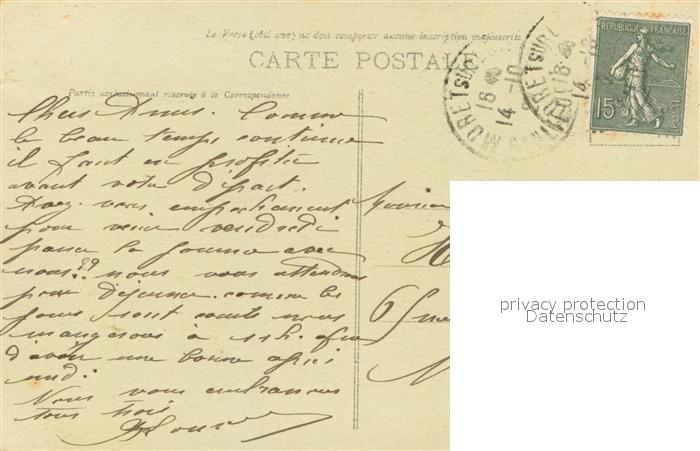 Le Verso (côté vue) ne doit comporter aucune inscription manuscrite
CARTE POSTALE
Partie exclusivement réservée à la Correspondance
REPUBLIQUE FRANÇAISE
15c
POSTES
MORET SUR L
16
14 -10
MORET SUR L
16
14
Chers Amis. Comme
le beau temps continue
il faut en profiter
avant votre départ.
Avez-vous empêchement
pour venir vendredi
passer la journée avec
nous?? nous vous attendrons
pour déjeuner. comme les
jours sont courts nous
mangerons à 11h. afin
d'avoir une bonne après
midi.
Nous vous embrassons
tous trois
6
privacy protection
Datenschutz